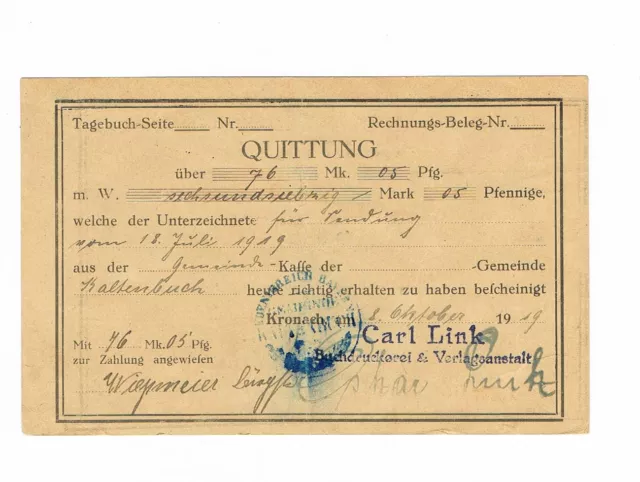 Tagebuch-Seite Nr. Rechnungs-Beleg-Nr.
QUITTUNG
über 76 Mk. 05 Pfg.
m. W. sechsundsiebzig Mark 05 Pfennige,
welche der Unterzeichnete für Sendung
vom 18. Juli 1919
aus der Gemeinde-Kasse der -Gemeinde
Kaltenbuch heute richtig erhalten zu haben bescheinigt
Kronach, am 2. Oktober 1919
Mit 76 Mk. 05 Pfg.
zur Zahlung angewiesen
Carl Link
Buchdruckerei & Verlagsanstalt